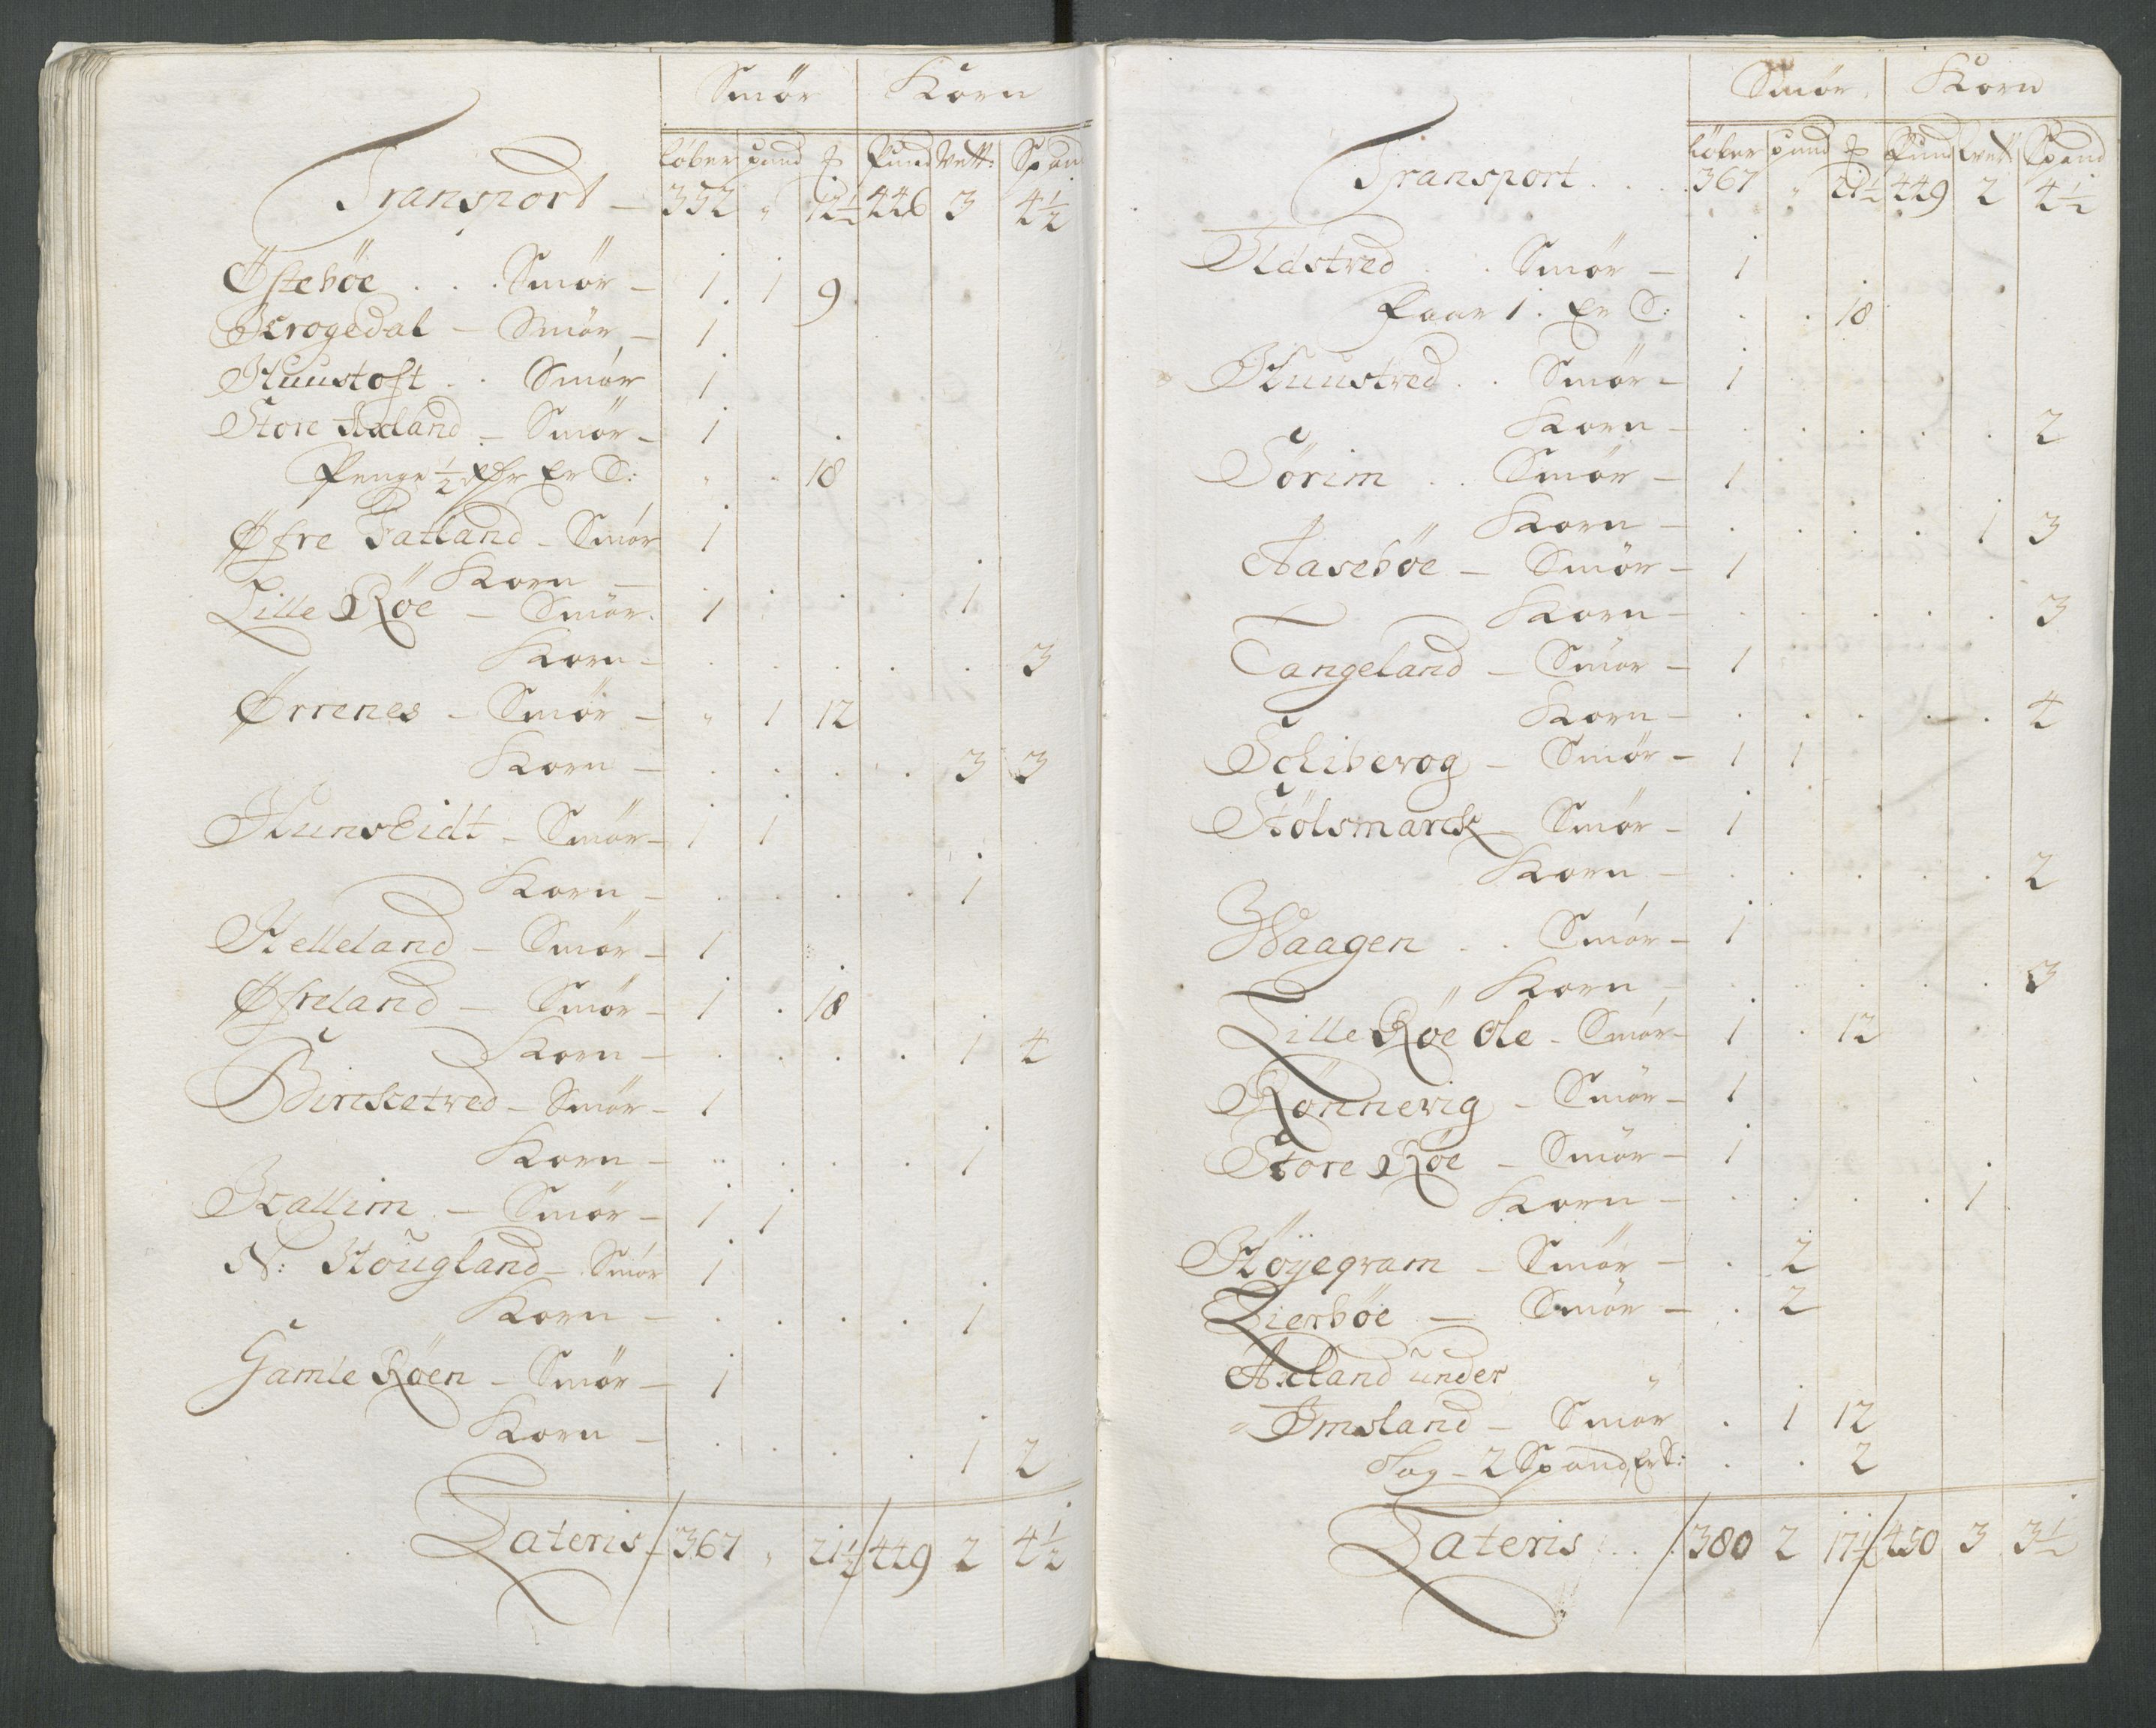 Smör Korn
Löber pund ℔ Pund Vett: Span
Transport — 352 " 12½ 446 3 4½
Østeböe . . . Smör — 1 1 9
Krogedal — Smör — 1
Huustoft . . Smör 1
Store Axland — Smör — 1
Penge ½ rdr Er S: " . 18
Øfre Fatland — Smör 1
Korn — . . . . 1
Lille Röe — Smör. 1
Korn — . . . . . 3
Ørrenes — Smör — " 1 12
Korn — . . . . 3 3
Hunseidt — Smör — 1 1
Korn — . . . . 1
Helleland — Smör — 1
Øfreland — Smör — 1 . 18
Korn — . . . . 1 4
Birketred — Smör — 1
Korn — . . . . 1
Kallim — Smör — 1 1
N: Hougland — Smör 1
Korn — . . . . 1
Gamle Röen — Smör — 1
Korn — . . . . 1 2
Lateris 367 " 21½ 449 2 4½
Smör Korn
Löber pund ℔ Pund Vett Spand
Transport . . . 367 " 21½ 449 2 4½
Udstred . . Smör — 1
Faar 1. Er S: . . 18
Huustred . . Smör — 1
Korn — . . . . . 2
Sörim . . Smör — 1
Korn — . . . . 1 3
Aaseböe — Smör — 1
Korn — . . . . . 3
Tangeland — Smör — 1
Korn — . . . . . 4
Schiberog — Smör — 1 1
Stölsmarck — Smör — 1
Korn — . . . . . 2
Waagen . . Smör — 1
Korn — . . . . . 3
Lille Röe Ole — Smör — 1 . 12
Rönnevig — Smör — 1
Store Röe — Smör — 1
Korn — . . . . 1
Höyegram — Smör — . 2
Lierböe — Smör — . 2
Axland under "
" Imsland — Smör . 1 12
2 Spand, Er S: . . 2
Lateris . . . 380 2 17½ 450 3 3½